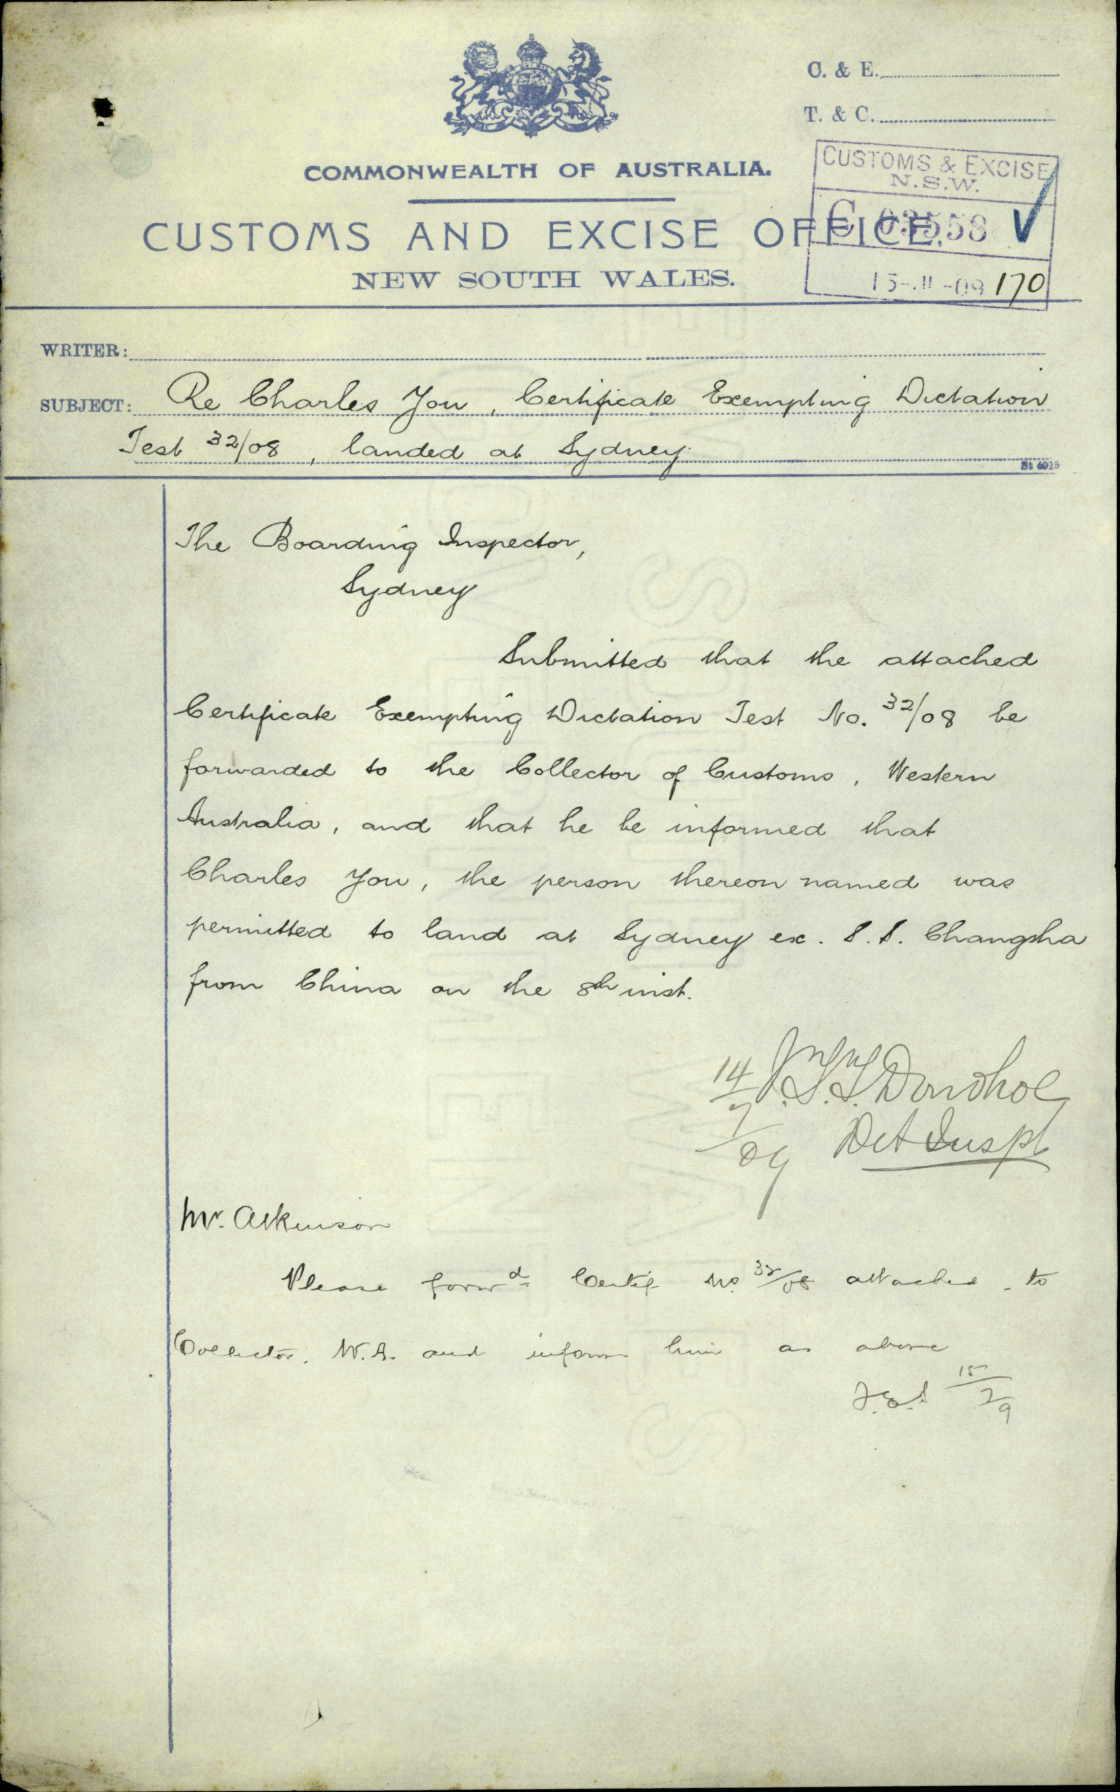 C. & E.
T. & C.
COMMONWEALTH OF AUSTRALIA.
CUSTOMS AND EXCISE OFFICE.
NEW SOUTH WALES.
CUSTOMS & EXCISE
N.S.W.
170
WRITER:
SUBJECT: Re Charles You, Certificate Exempting Dictation
Test 32/08, landed at Sydney.
The Boarding Inspector,
Sydney
Submitted that the attached
Certificate Exempting Dictation Test No. 32/08 be
forwarded to the Collector of Customs, Western
Australia, and that he be informed that
Charles You, the person thereon named was
permitted to land at Sydney ex. S.S. Changsha
from China on the 8th inst.
14/7/09 Donohoe
Det Inspr
Mr. Atkinson
Please forwd Certif No. 32/08 attached to
Collector, W.A. and inform him as above
15/7/9